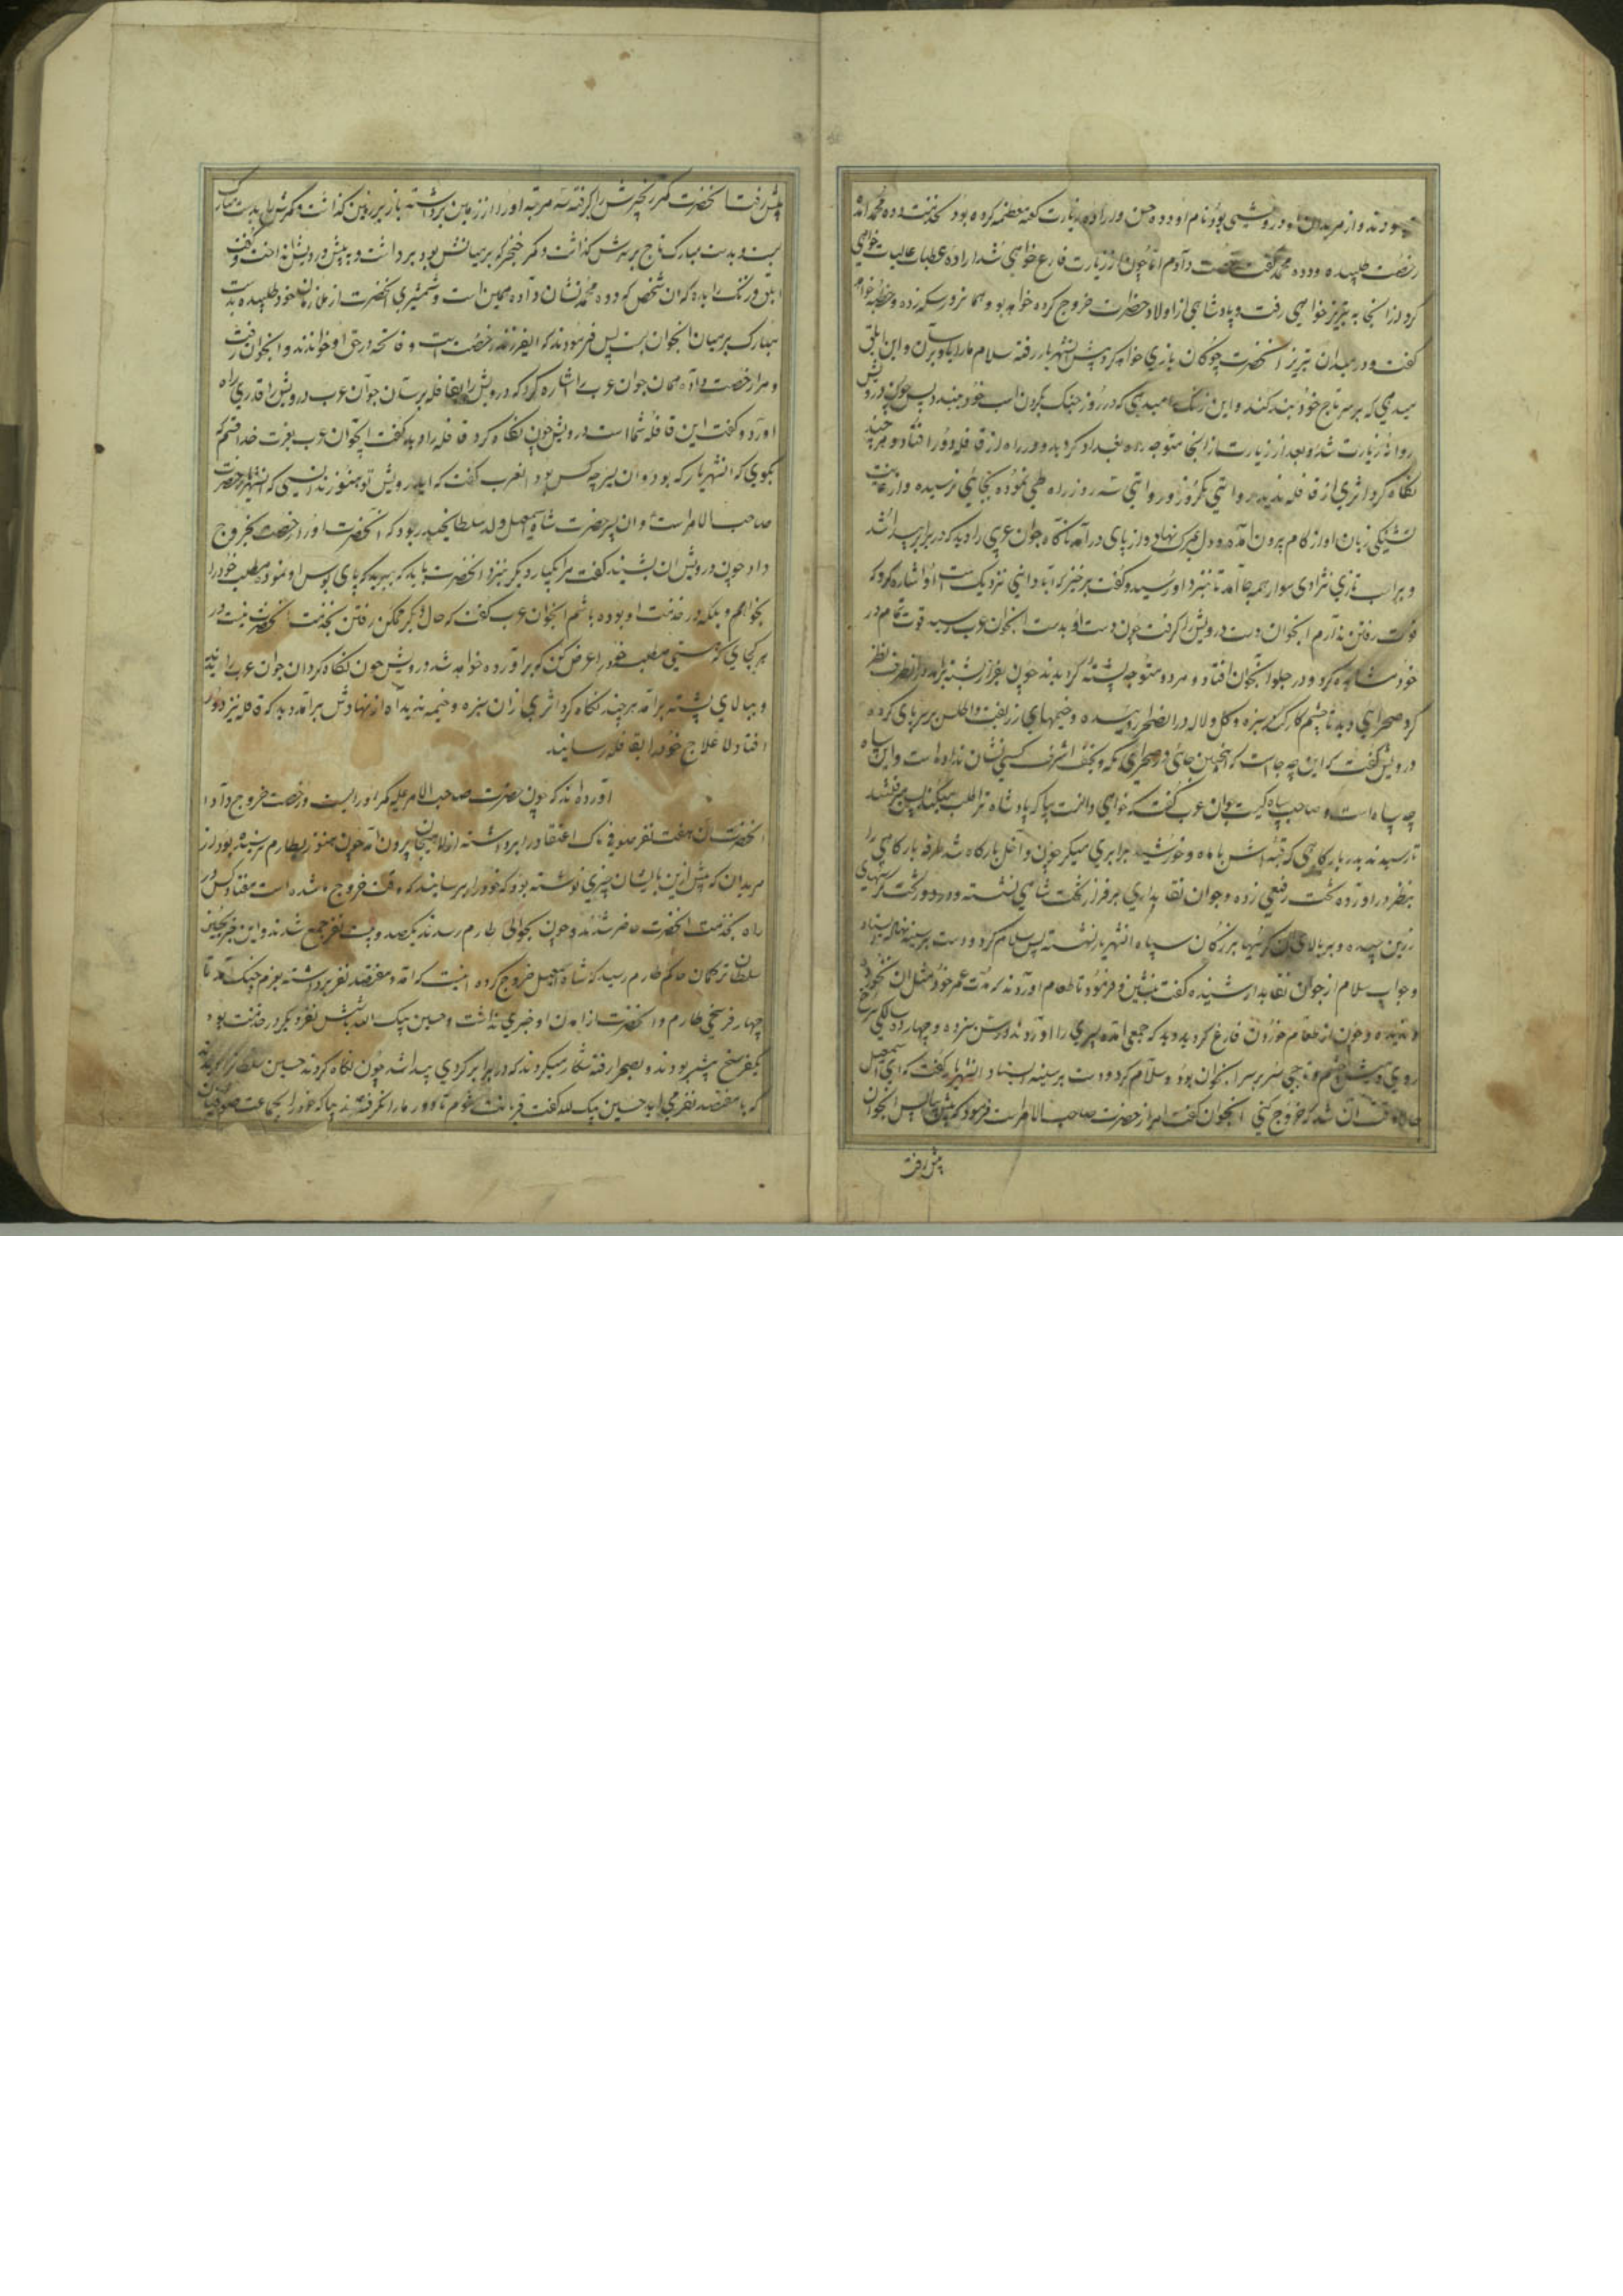 نمودند و از مریدان او درویشی بود نام او دده حسن و اراده زیارت کعبه معظمه کرده بود بخدمت دده محمد آمد
رخصت طلبیده و دده محمد گفت رخصت دادم اما چون از زیارت فارغ خواهی شد اراده عتبات عالیات خواهی
کرد از آنجا به تبریز خواهی رفت و پادشاهی از اولاد حضرت خروج کرده خواهد بود و سکه زده و خطبه خوانده
گفت و در میدان تبریز آنحضرت چوکان بازی خواهد کرد پیش آنشهریار رفته سلام ما را باو برسان و این ابلق
میدهی که بر سر تاج خود بند کند و این زنک میدهی که در روز جنک بگردن اسب خود ببندد پس چون درویش
روانه زیارت شد و بعد از زیارت از آنجا متوجه راه بغداد کردید و در راه از قافله دور افتاد و هر چند
نکاه کرد اثری از قافله ندید بروایتی یکروز و روایتی سه روز راه طی نموده بجایی نرسیده و از غایت
تشنکی زبان او از کام بیرون آمده و دل بمرک نهاد و از پای درآمد ناکاه جوان عربی را دید که در برابر پیدا شد
و بر اسب تازی نژادی سوار همه جا آمد تا بنزد او رسید و گفت برخیز که آبادانی نزدیک است او اشاره کرد که
قوت رفتن ندارم آنجوان دست درویش را کرفت چون دست او بدست آنجوان عرب رسید قوت تمام در
خود مشاهده کرد و در جلو آنجوان افتاد و هر دو متوجه پشته کردیدند چون بفراز پشته برآمدند از هر طرف نظر
کرد صحرایی دید تا چشم کار کند سبزه و کل و لاله در آن صحرا رسیده و خیمهای زربفت و اطلس بر سر پای کرده
درویش گفت که این چه جا است که اینچنین جای در صحرای مکه و نجف اشرف کسی نشان نداده است و این سپاه
چه سپاه است و صاحب سپاه کیست جوان عرب گفت که خواهی دانست بیا که پادشاه ترا طلب میکند پس میرفتند
تا رسیدند بدر بارکاهی که قبه اش با ماه و خورشید برابری میکرد چون داخل بارکاه شد طرفه بارکاهی را
بنظر درآورده تخت رفیعی زده و جوان نقابداری بر فراز تخت شاهی نشسته و در دور تخت کرسیهای
زرین چیده و بر بالای آن کرسیها بزرکان سپاه آنشهریار نشسته پس سلام کرد و دست بر سینه نهاده ایستاد
و جواب سلام از جوان نقابدار شنیده گفت بنشین و فرمود تا طعام آوردند که مدت عمر خود مثل آن نخورده و
ندیده و چون از طعام خوردن فارغ کردید دید که جمعی آمده پسری را آوردند در سن سیزده و چهارده سالکی سرخ
روی و میش چشم و تاجی سرخ بر سر آنجوان بود و سلام کرد و دست بر سینه ایستاد آنشهریار گفت که ای اسمعیل
حالا وقت آن شد که خروج کنی آنجوان گفت امر از حضرت صاحب الامر است فرمود که پیش بیا پس آنجوان
پیش رفت
پیش رفت آنحضرت کمر خنجرش را کرفته سه مرتبه او را از زمین برداشته باز بر زمین کذاشت و کمرش را بدست مبارک
بست و بدست مبارک تاج بر سرش کذاشت و کمر خنجر که بر میانش بود برداشت و به پیش درویش انداخت و گفت
ابلق و زنک را بده که آن شخص که دده محمد نشان داده همین است و شمشیری آنحضرت از ملازمان خود طلبیده بدست
مبارک بر میان آنجوان بست پس فرمودند که ایفرزند رخصت است و فاتحه در حق او خواندند و آنجوان رفت
و مرا رخصت داده بهمان جوان عرب اشاره کرد که درویش را بقافله برسان جوان عرب درویش را قدری راه
آورد و گفت این قافله شما است درویش چون نکاه کرد قافله را دید گفت ایجوان عرب بعزت خدا قسم که
بگوی که آنشهریار که بود و آن پسر چه کس بود آنعرب گفت که ایدرویش تو هنوز ندانستی که آنشهریار حضرت
صاحب الامر است و آن پسر حضرت شاه اسمعیل ولد سلطان حیدر بود که آنحضرت او را رخصت بخروج
داد چون درویش آن بشنید گفت مرا یکبار دیکر بنزد آنحضرت باید که ببرید که پای بوس او شوم و مطلب خود را
بخواهم و بلکه در خدمت او بوده باشم آنجوان عرب گفت که حال دیکر ممکن رفتن بخدمت آنحضرت نیست در
هر کجای که هستی مطلب خود را عرض کن که برآورده خواهد شد درویش چون نکاه کرد آن جوان عرب را ندید
و ببالای پشته برآمد هر چند نکاه کرد اثری از آن سبزه و خیمه ندید آه از نهادش برآمد دید که قافله نیز دور
افتاد لاعلاج خود را بقافله رسانید
آورده اند که چون حضرت صاحب الامر علیه کمر او را بست و رخصت خروج داد
آنحضرت آن هفت نفر صوفی پاک اعتقاد را برداشته از لاهیجان بیرون آمد چون هنوز بطارم نرسیده بود از
مریدان که پیش ازین بایشان چیزی نوشته بود که خود را برسانید که وقت خروج ما شده است هفتاد کس در
راه بخدمت آنحضرت حاضر شدند و چون بحوالی طارم رسیدند یکصد و بیست نفر جمع شدند و این خبر بحسین
سلطان ترکمان حاکم طارم رسید که شاه اسمعیل خروج کرده اینست که آمد و هفتصد نفر برداشته بعزم جنک آمد تا
چهار فرسخی طارم و آنحضرت از آمدن او خبری نداشت و حسین بیک لله با شش نفر دیکر در خدمت بود
یکفرسخ پیشتر بودند و بصحرا رفته شکار میکردند که در برابر کردی پیدا شد چون نکاه کردند حسین سلطان را دیدند
که با هفتصد نفر می آید حسین بیک لله گفت قربانت شوم تا دور ما را نکرفته اند بیا که خود را بجماعت صوفیان